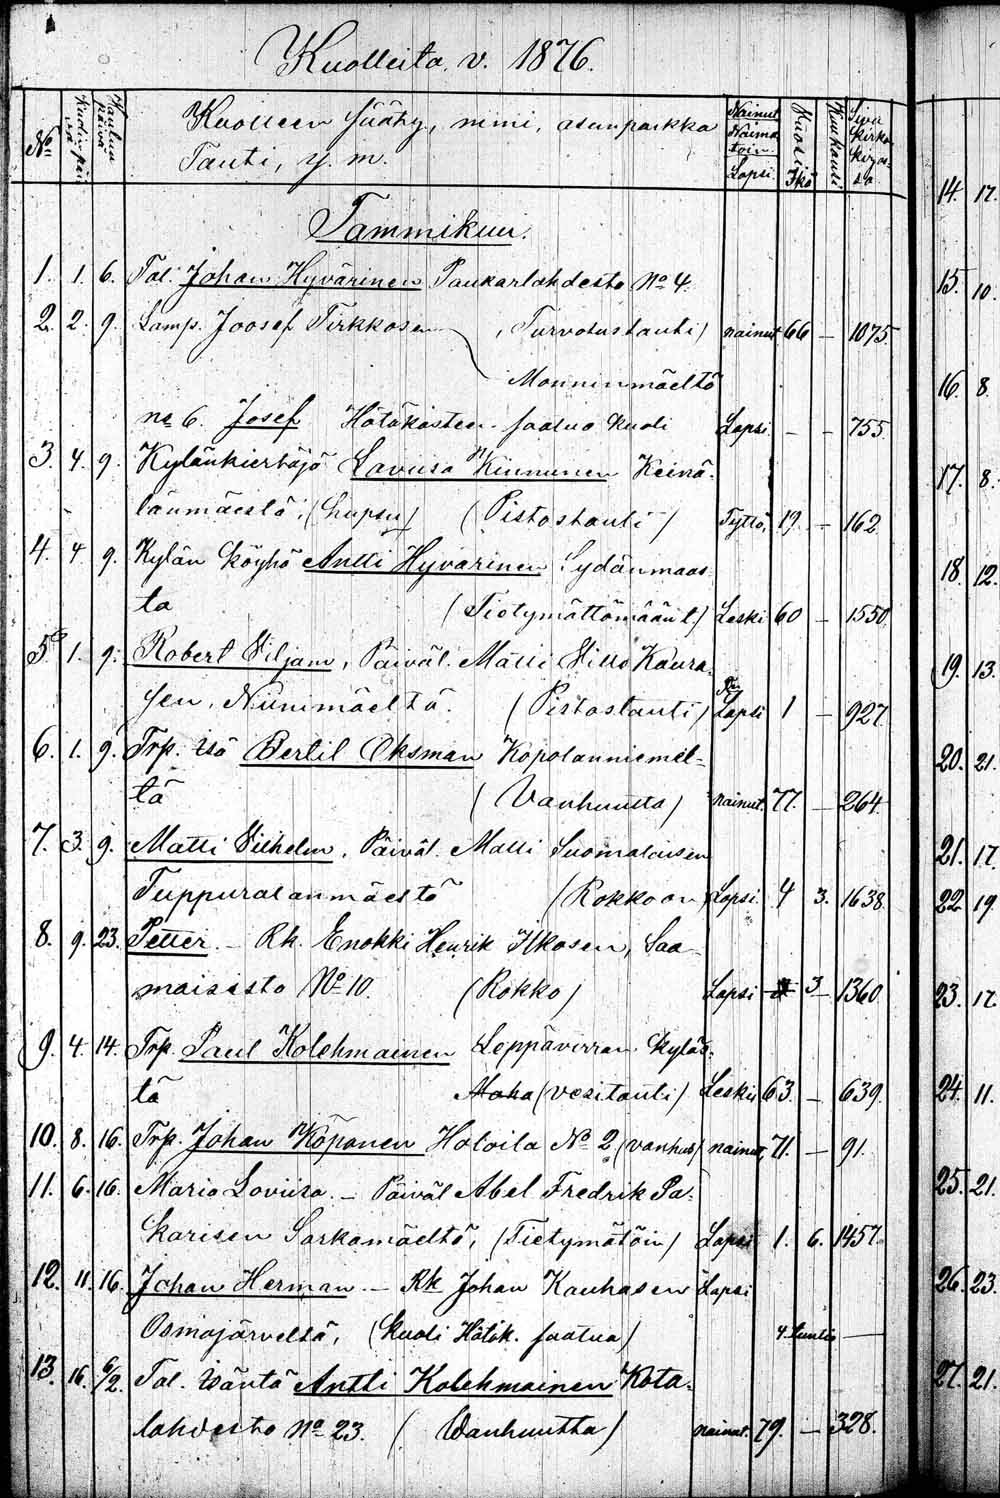 Kuolleita v. 1876.
No Kuolinpäivä Hautauspäivä Kuolleen sääty, nimi, asuinpaikka Nainut Naimatoin Lapsi. Kuolin Ikä Kuukausi Sivu Kirkonkirjassa
Tauti, y. m.
Tammikuu.
1. 1. 6. Tal. Johan Hyvärinen Paukarlahdesta No 4.
2. 2. 9. Lamp. Joosef Tirkkosen (Turvotustauti) nainut 66 — 1075.
Monninmäeltä
no 6. Josef Hätäkasteen saatua kuoli Lapsi. - - 755.
3. 4. 9. Kylänkiertäjä Lavusa Kinnunen Keinä-
länmäestä, (Lupsu) (Pistostauti) Tyttö, 19. — 162
4. 4 9. Kylän köyhä Antti Hyvärinen Sydänmaas-
ta (Tiotymättömään t.) Leski 60 — 1550.
5. 1. 9. Robert Viljam, Päiväl. Matti Villo Kaura-
sen, Niinimäeltä. (Pistostauti) Lapsi 1 — 927.
6. 1. 9. Trp. isä Bertil Oksman Kopolanniemel-
tä (Vanhuutta) nainut. 77. — 264.
7. 3. 9. Matti Vilhelm, Päiväl. Matti Suomalaisen
Tuppuralanmäestä (Rokkoon) Lapsi. 4 3. 1638.
8. 9. 23. Petter — Rk. Enokki Henrik Ilkosen, Saa-
maisista No 10. (Rokko) Lapsi 3 — 1360.
9. 4. 14. Trp. Paul Kolehmainen Leppävirran kyläs-
tä (vesitauti) Leski 63. — 639.
10. 8. 16. Trp. Johan Köponen Hotoila No 2 (vanhus) nainut, 71. — 91.
11. 6. 16. Maria Loviisa — Päiväl Abel Fredrik Pa-
karisen Sarkamäeltä, (Tietymätöin) Lapsi 1. 6. 1457.
12. 11. 16. Johan Herman — Rk Johan Kauhasen Lapsi
Osmajärveltä, (kuoli Hätäk. saatua) 4 tuntia —
13. 16. 6/2. Tal. isäntä Antti Kolehmainen Kota-
lahdesta No 23. (Wanhuutta) nainut. 79. — 328.
14. 17.
15. 10.
16. 8.
17. 8.
18. 12.
19. 13.
20. 21.
21. 17.
22. 19.
23. 17.
24. 11.
25. 21.
26. 23.
27. 21.